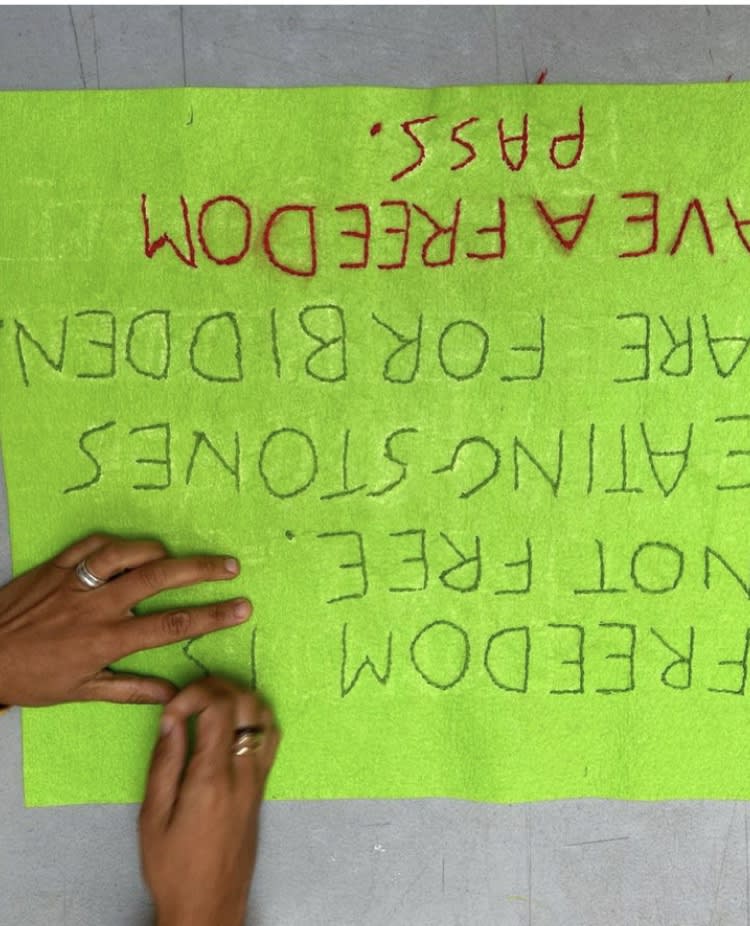 FREEDOM IS
NOT FREE.
EATING STONES
ARE FORBIDDEN
AVE A FREEDOM
PASS.